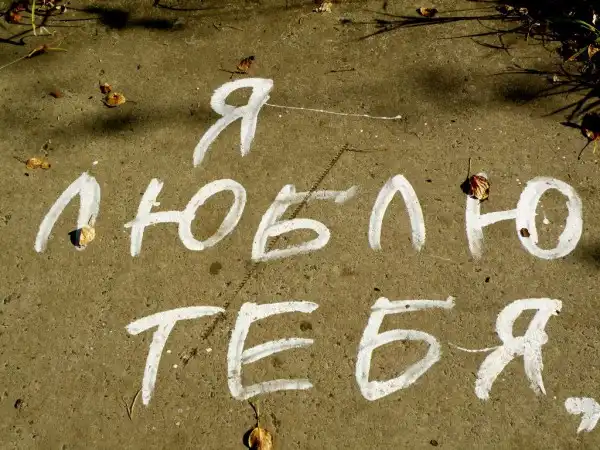 Я
ЛЮБЛЮ
ТЕБЯ,